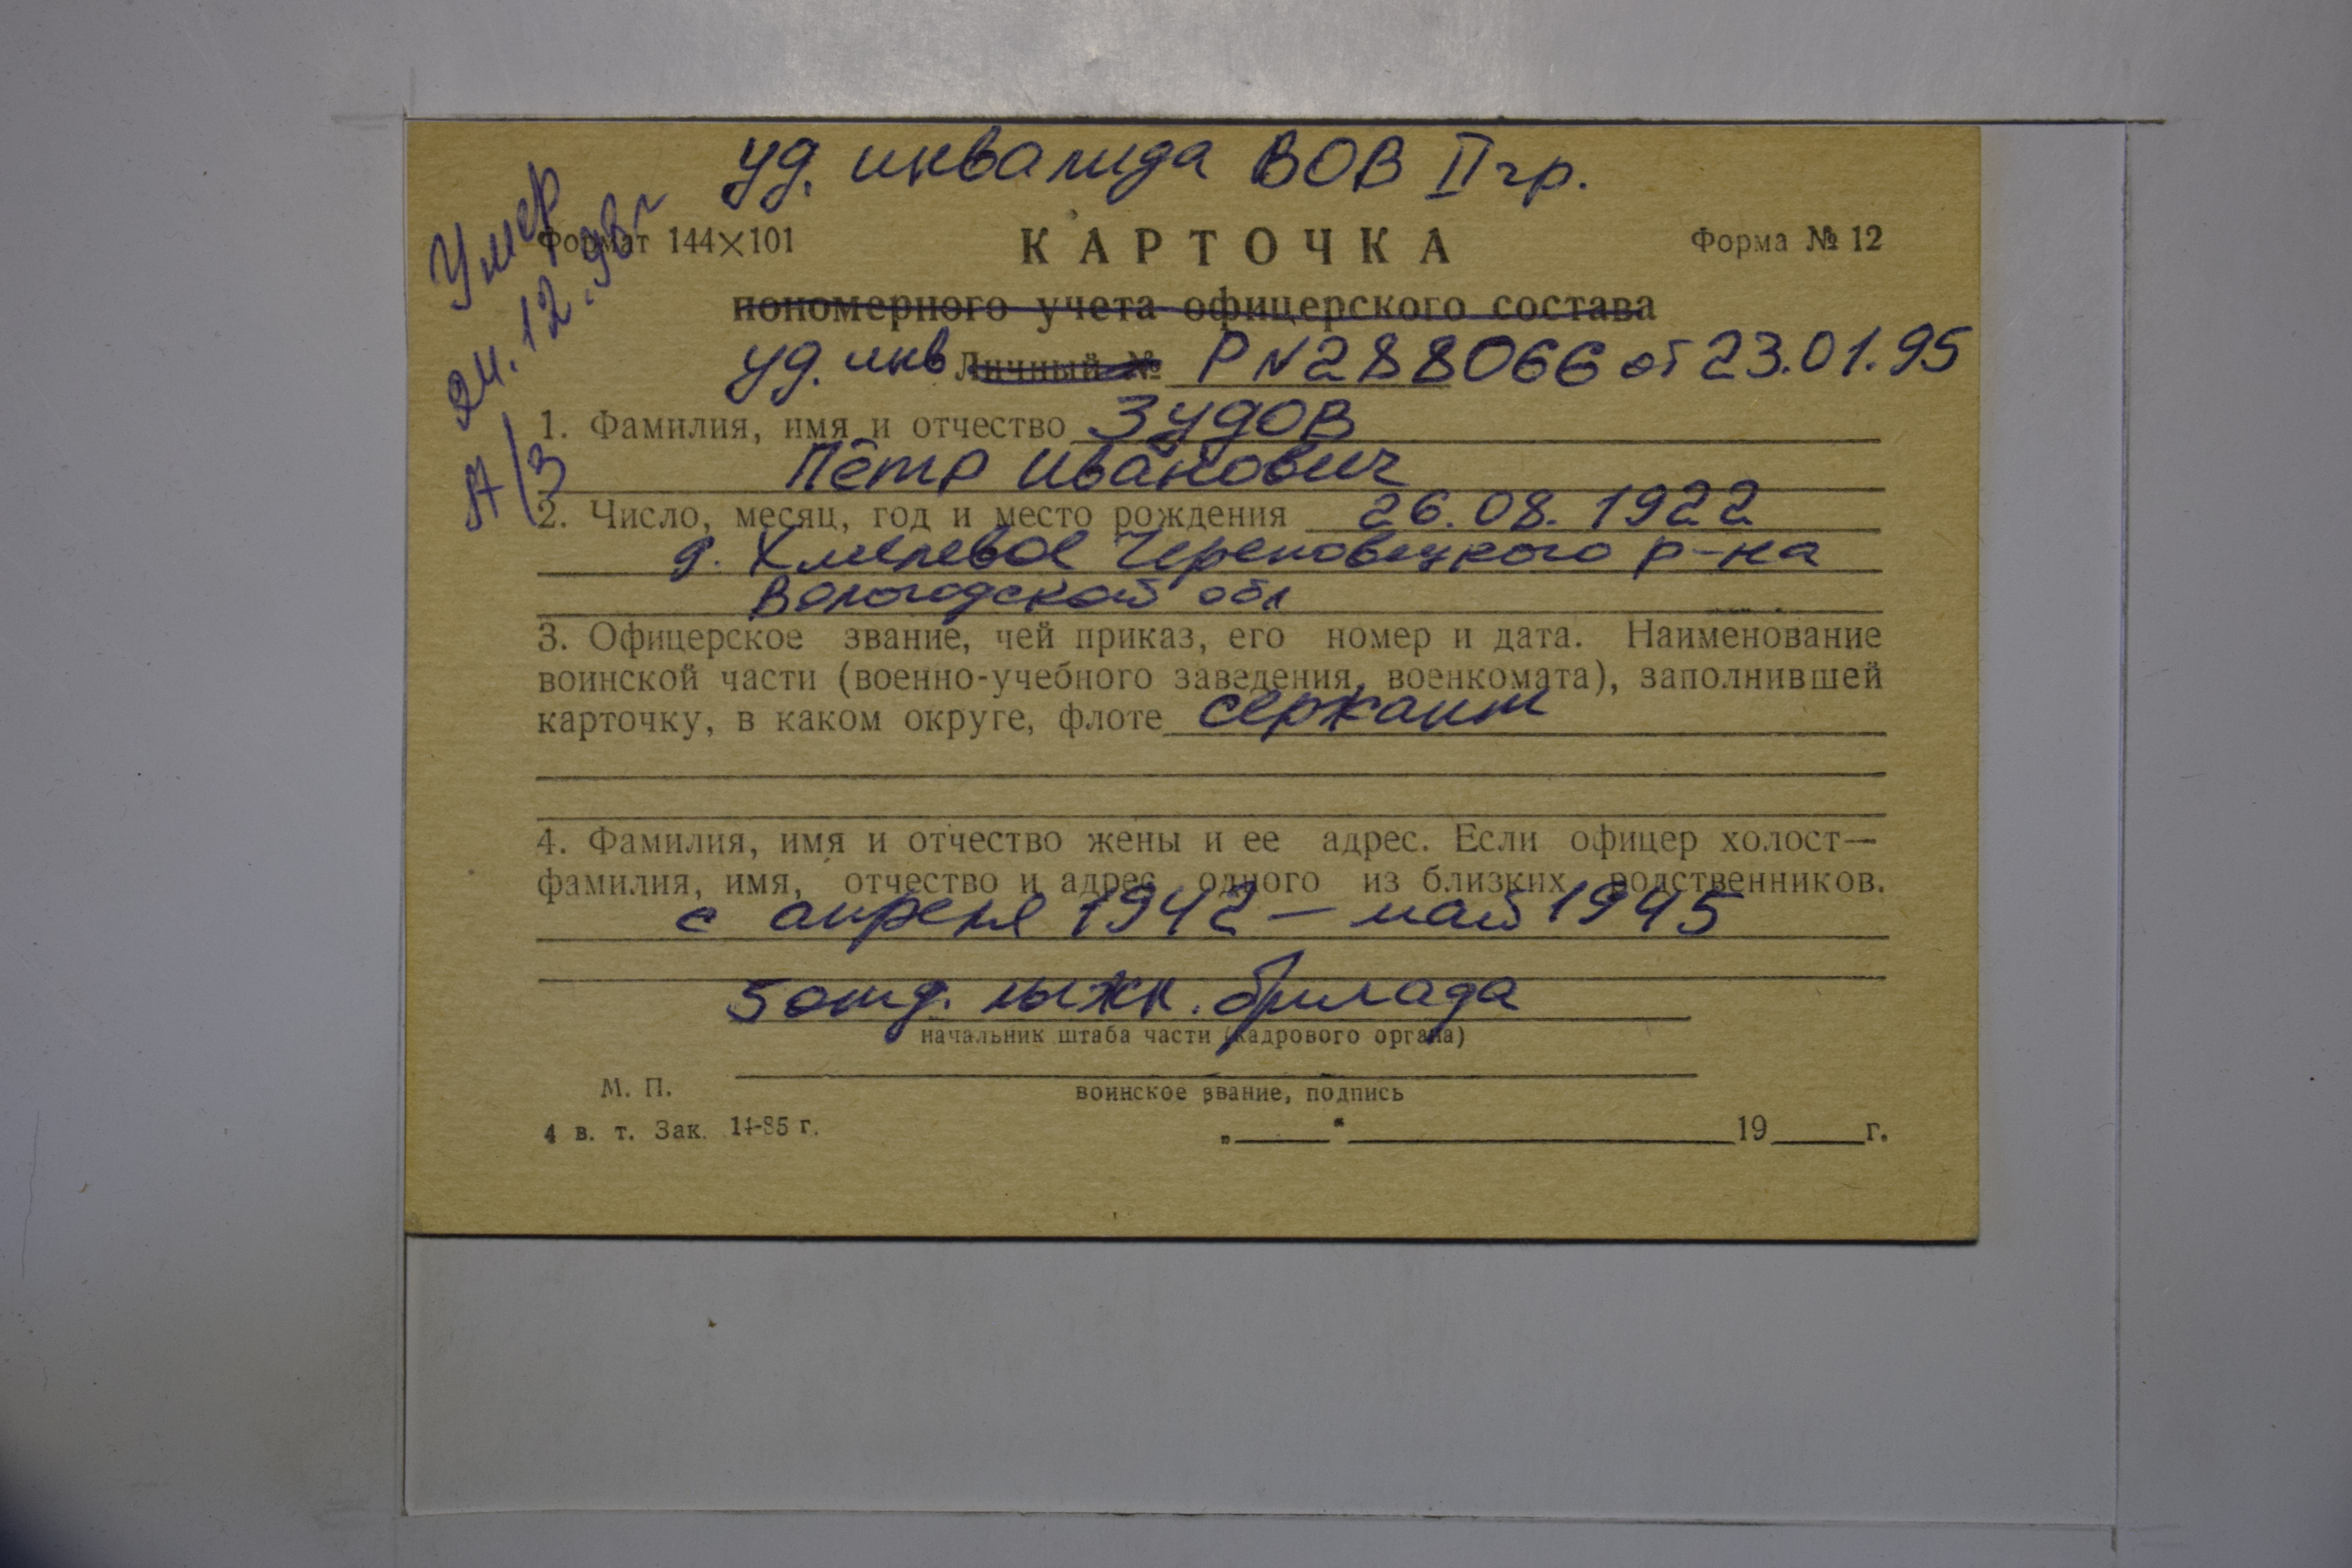 уд. инвалида ВОВ II гр.
Умер
24.12.98г
А/З
Формат 144×101
КАРТОЧКА
Форма № 12
пономерного учета офицерского состава
уд. инв Личный № Р N 288066 от 23.01.95
1. Фамилия, имя и отчество Зудов
Пётр Иванович
2. Число, месяц, год и место рождения 26.08.1922
д. Хмелевое Череповецкого р-на
Вологодской обл
3. Офицерское звание, чей приказ, его номер и дата. Наименование
воинской части (военно-учебного заведения, военкомата), заполнившей
карточку, в каком округе, флоте сержант
4. Фамилия, имя и отчество жены и ее адрес. Если офицер холост—
фамилия, имя, отчество и адрес одного из близких родственников.
с апреля 1942 – май 1945
5 отд. лыжн. бригада
начальник штаба части (кадрового органа)
М. П.
воинское звание, подпись
4 в. т. Зак. 14-85 г.
„ “ 19 г.